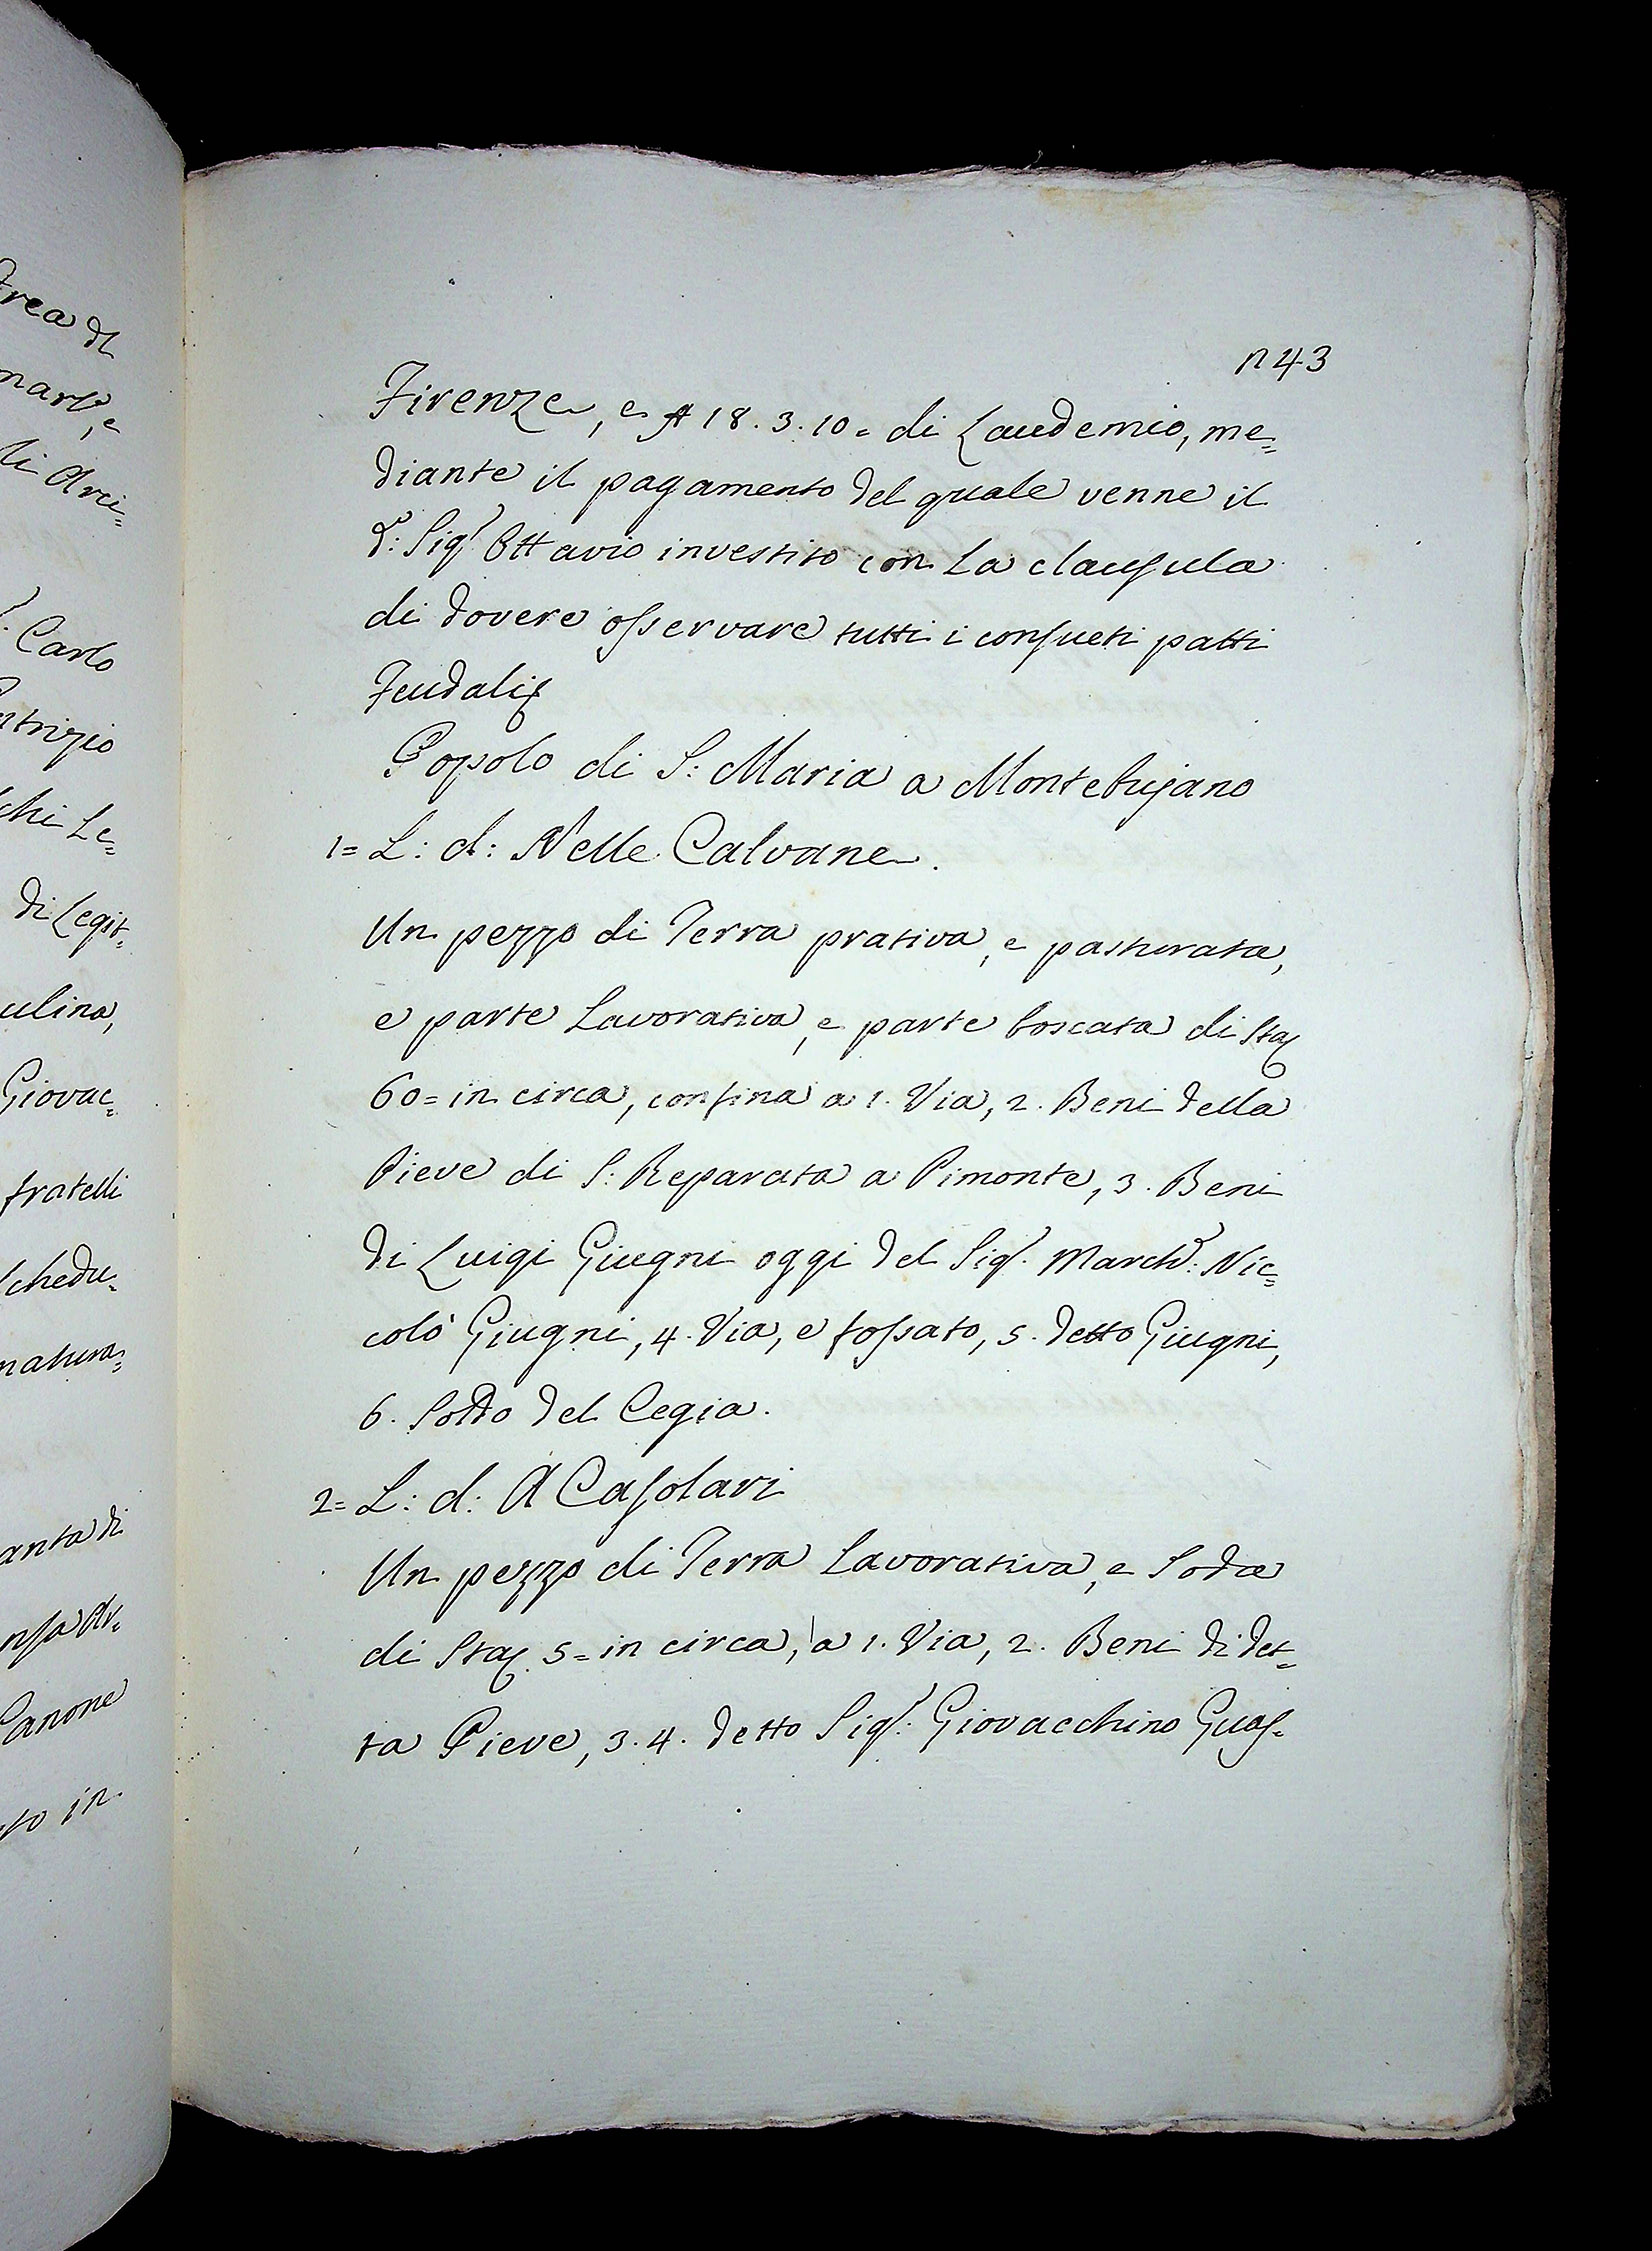 rea di
mars, e
di Arci=
Carlo
trizio
chi Le=
di Legit=
ulina,
Giovac=
fratelli
schedu=
natura=
anta di
nsa Ar=
Canone
to in
n 43
Firenze, e ₶ 18. 3. 10= di Laudemio, me=
diante il pagamento del quale venne il
d: Sig: Ottavio investito con La clausula
di dovere osservare tutti i consueti patti
Feudali
Popolo di S: Maria a Montebujano
1= L: d: Nelle Calvane.
Un pezzo di Terra prativa, e pasturata,
e parte Lavorativa, e parte boscata di Sta:
60= in circa, confina a 1. Via, 2. Beni della
Pieve di S: Reparata a Pimonte, 3. Beni
di Luigi Giugni oggi del Sig: March: Nic=
colò Giugni, 4. Via, e fossato, 5. detto Giugni,
6. Soldo del Cegia.
2= L: d: A Casolari
Un pezzo di Terra Lavorativa, e Soda
di Sta: 5= in circa, a 1. Via, 2. Beni di det=
ta Pieve, 3. 4. detto Sig: Giovacchino Guas=